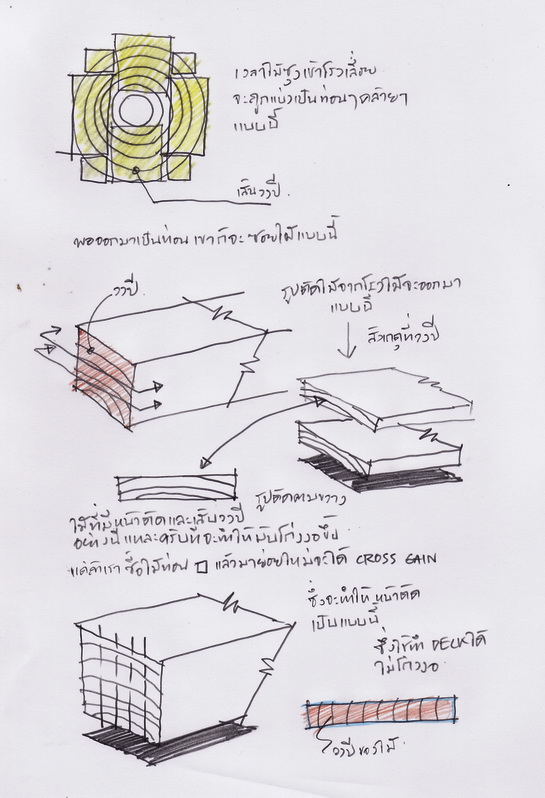 เวลาไม้ซุงเข้าโรงเลื่อย
จะถูกแบ่งเป็นท่อนๆคล้ายๆ
แบบนี้
เส้นวงปี.
พอออกมาเป็นท่อน เขาก็จะซอยไม้แบบนี้
วงปี.
รูปตัดไม้จากโรงไม้จะออกมา
แบบนี้
สังเกตุที่วงปี
รูปตัดตามขวาง
ไม้ที่มีหน้าตัดและเส้นวงปี
อย่างนี้แหละครับที่จะทำให้มันโก่งงอขึ้น
แต่ถ้าเราซื้อไม้ท่อน แล้วมาซอยใหม่จะได้ CROSS GAIN
ซึ่งจะทำให้หน้าตัด
เป็นแบบนี้
ซึ่งใช้ทำ DECK ได้
ไม่โก่งงอ.
วงปีของไม้.